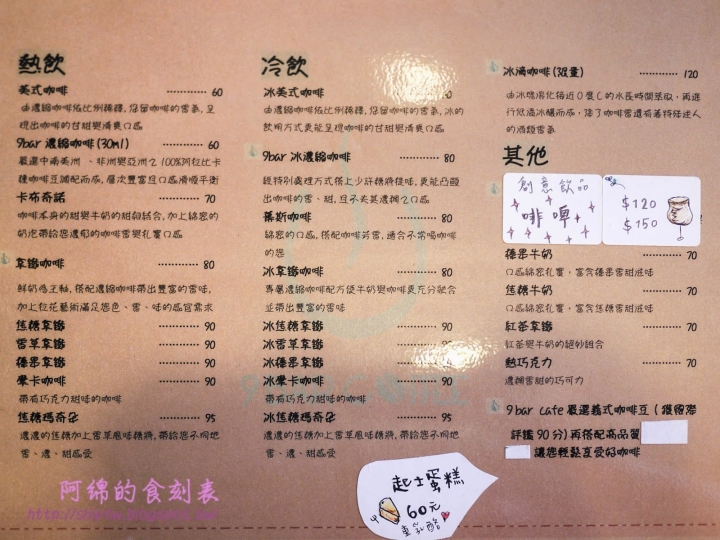 熱飲
美式咖啡 ············ 60
由濃縮咖啡依比例稀釋,保留咖啡的香氣,呈
現出咖啡的甘甜與清爽口感
9bar 濃縮咖啡(30ml) ··· 60
嚴選中南美洲、非洲與亞洲之100%阿拉比卡
種咖啡豆調配而成,層次豐富且口感滑順平衡
卡布奇諾 ············ 70
咖啡本身的甜與牛奶的甜和結合,加上綿密的
奶泡帶給您濃郁的咖啡香與扎實口感
拿鐵咖啡 ············ 80
鮮奶為主軸,搭配濃縮咖啡帶出豐富的香味,
加上拉花藝術滿足您色、香、味的感官需求
焦糖拿鐵 ············ 90
香草拿鐵 ············ 90
榛果拿鐵 ············ 90
摩卡咖啡 ············ 90
帶有巧克力甜味的咖啡
焦糖瑪奇朵 ············ 95
濃濃的焦糖加上香草風味糖漿,帶給您不同地
香、濃、甜感受
冷飲
冰美式咖啡
由濃縮咖啡依比例稀釋,保留咖啡的香氣,冰的
飲用方式更能呈現咖啡的甘甜與清爽口感
9bar 冰濃縮咖啡 ········ 80
經特別處理方式搭上少許糖漿提味,更能凸顯
出咖啡的香、甜,且不失其濃稠之口感
慕斯咖啡 ············ 80
綿密的口感,搭配咖啡芳香,適合不常喝咖啡
的您
冰拿鐵咖啡 ············ 80
專屬濃縮咖啡配方使牛奶與咖啡更充分融合
並帶出豐富的香味
冰焦糖拿鐵 ············ 90
冰香草拿鐵 ············ 90
冰榛果拿鐵
冰摩卡咖啡 ············ 90
帶有巧克力甜味的咖啡
冰焦糖瑪奇朵 ············ 95
濃濃的焦糖加上香草風味糖漿,帶給您不同地
香、濃、甜感受
冰滴咖啡(限量) ········ 120
由冰塊溶化接近0度C的水長時間萃取,再進
行低溫冰釀而成,除了咖啡香還有著特殊迷人
的酒類香氣
其他
創意飲品
啡啤
$120
$150
榛果牛奶 ············ 70
口感綿密扎實,富含榛果香甜滋味
焦糖牛奶 ············ 70
口感綿密扎實,富含焦糖香甜滋味
紅茶拿鐵 ············ 70
紅茶與牛奶的絕妙組合
熱巧克力 ············ 70
濃稠香甜的巧可力
9bar cafe 嚴選義式咖啡豆(獲國際
評鑑90分)再搭配高品質
讓您輕鬆享受好咖啡
起士蛋糕
60元
重乳酪
阿綿的食刻表